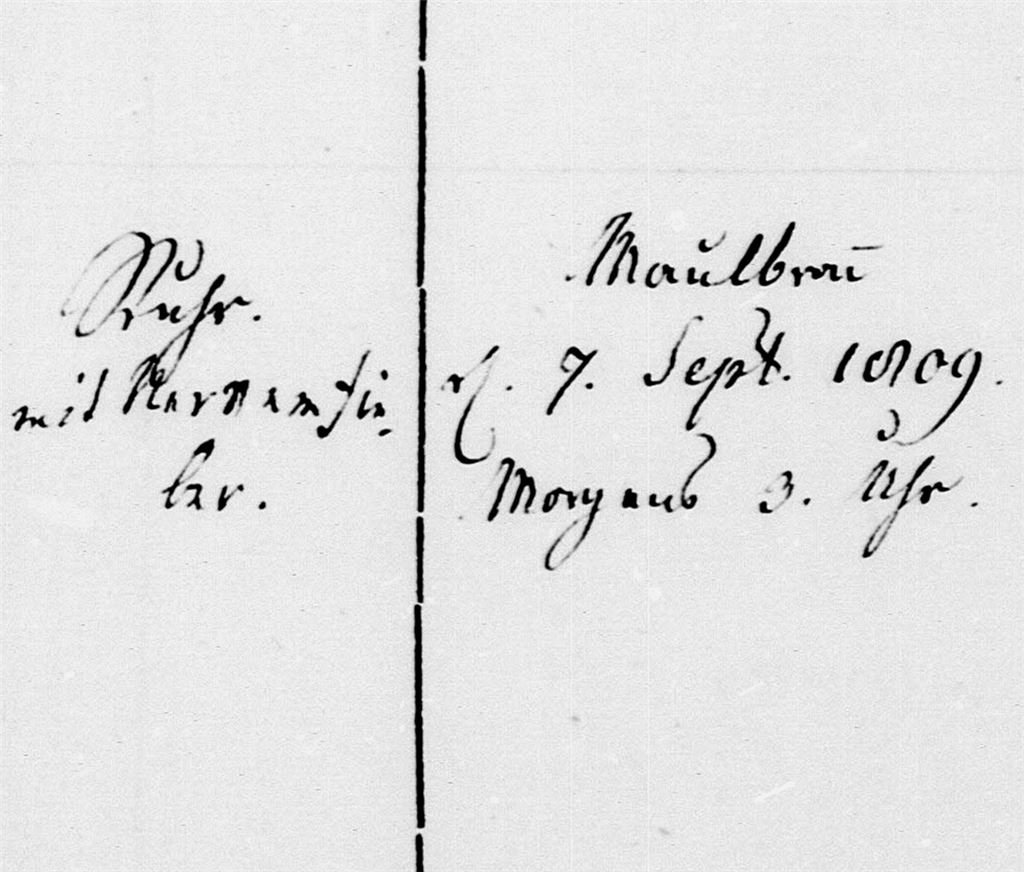 Ruhr.
mit Nervenfie-
ber.
Maulbroñ
d. 7. Sept. 1809.
Morgens 3. Uhr.